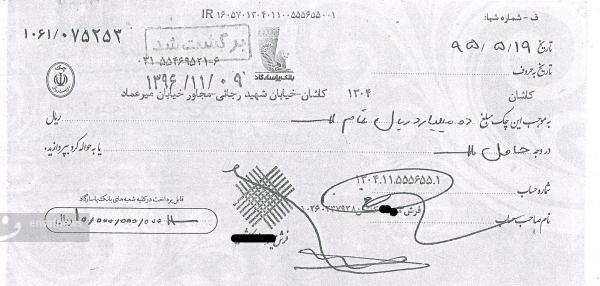 ف - شماره شبا:
IR ۱۶۰۵۷۰۱۳۰۴۰۱۱۰۰۵۵۵۶۵۵۰۰۱
۱۰۶۱/۰۷۵۲۵۳
برگشت شد
تاریخ ۹۵/۵/۱۹
۰۳۱-۵۵۴۶۹۵۲۱-۶
بانک پاسارگاد
تاریخ به حروف
۱۳۹۶/۱۱/۰۹
کاشان ۱۳۰۴ کاشان-خیابان شهید رجائی-مجاور خیابان میرعماد
به موجب این چک مبلغ ده میلیارد ریال تمام ریال
در وجه حامل یا به حواله کرد بپردازید.
شماره حساب ۱۳۰۴.۱۱.۵۵۵۶۵۵.۱
قابل پرداخت در کلیه شعبه های بانک پاسارگاد
نام صاحب حساب فرش
۱۰/۰۰۰/۰۰۰/۰۰۰ ریال
فرش